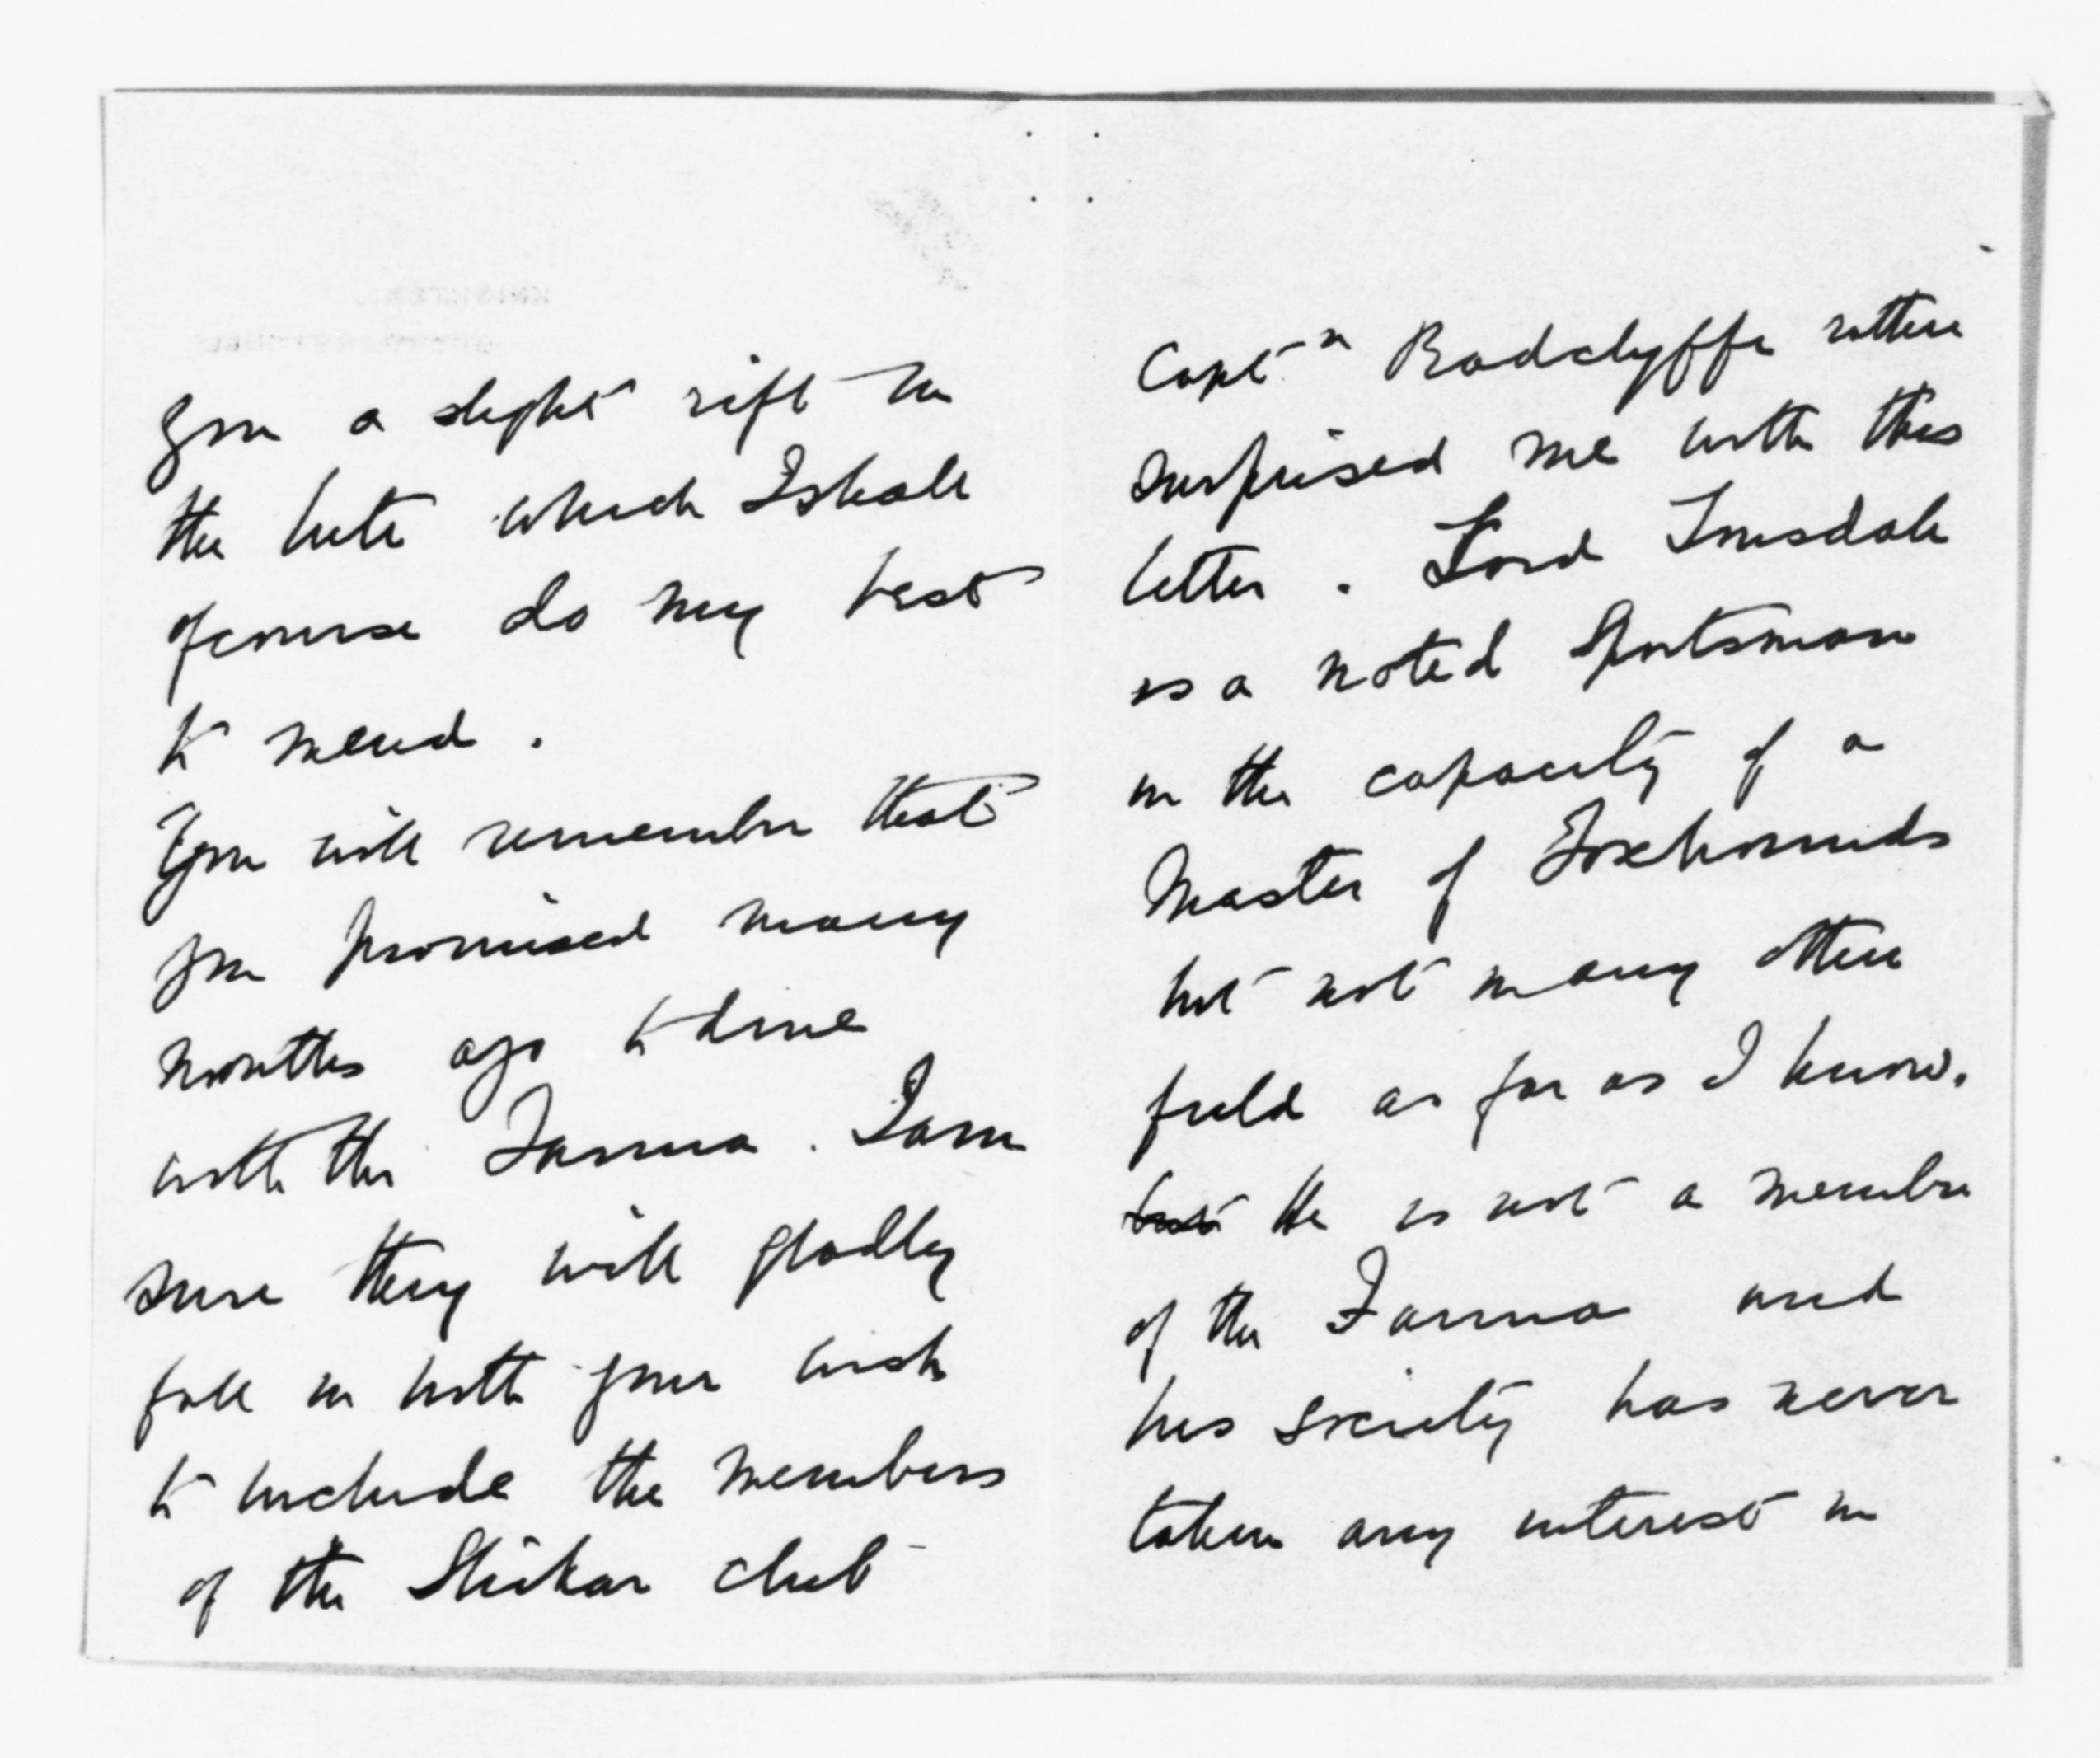 you a slight rift in
the lute which I shall
of course do my best
to mend.
You will remember that
you promised many
months ago to dine
with the Fauna. I am
sure they will gladly
fall in with your wish
to include the members
of the Shikar club
Capt.n Radclyffe rather
surprised me with this
letter. Lord Lonsdale
is a noted Sportsman
in the capacity of a
Master of Foxhounds
but not many other
field as far as I know.
but He is not a member
of the Fauna and
his society has never
taken any interest in